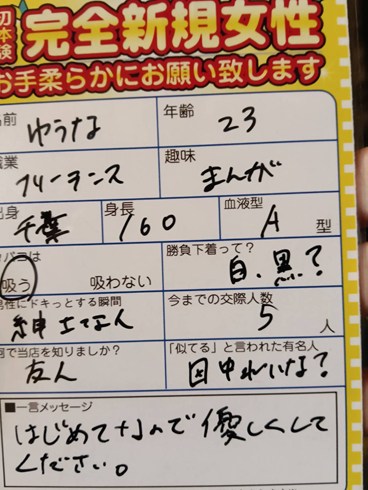 初体験
完全新規女性
お手柔らかにお願い致します
名前
ゆうな
年齢
23
職業
フリーランス
趣味
まんが
出身
千葉
身長
160
血液型
A型
タバコは
吸う 吸わない
勝負下着って?
白、黒?
男性にドキっとする瞬間
紳士な人
今までの交際人数
5人
何で当店を知りましたか?
友人
「似てる」と言われた有名人
田中れいな?
■一言メッセージ
はじめてなので優しくして
ください。